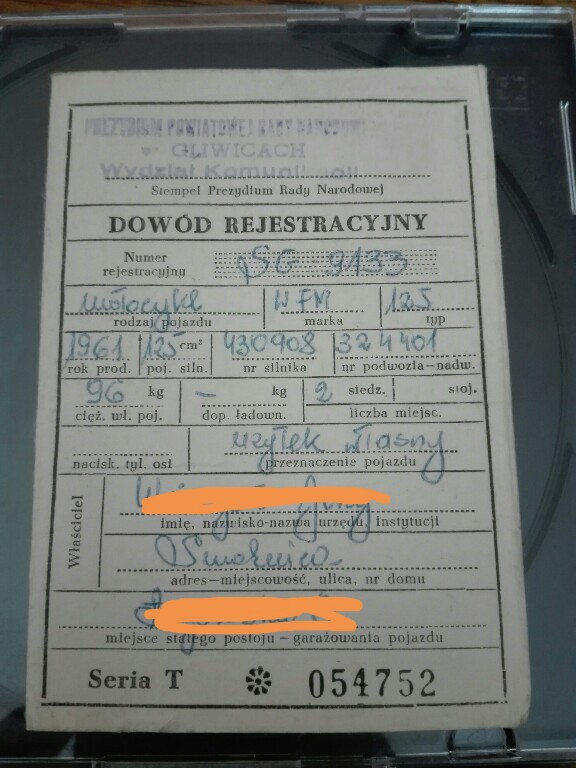 PREZYDIUM POWIATOWEJ RADY NARODOWEJ
w GLIWICACH
Wydział
Stempel Prezydium Rady Narodowej
DOWÓD REJESTRACYJNY
Numer rejestracyjny SG 9133
motocykl WFM 125
rodzaj pojazdu marka typ
1961 125 cm³ 430908 324401
rok prod. poj. siln. nr silnika nr podwozia-nadw.
96 kg – kg 2 siedz. stoj.
cięż. wł. poj. dop. ładown. liczba miejsc.
użytek własny
nacisk. tyl. osi przeznaczenie pojazdu
Właściciel
imię, nazwisko-nazwa urzędu, instytucji
Smolnica
adres—miejscowość, ulica, nr domu
miejsce stałego postoju – garażowania pojazdu
Seria T 054752